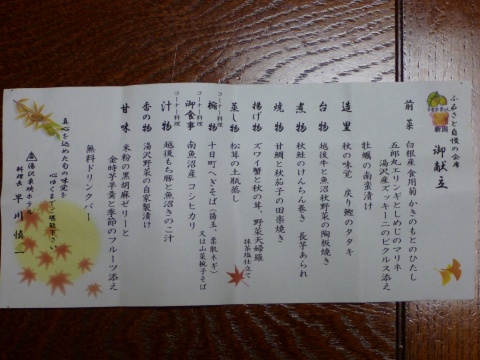 ふるさと自慢の会席
御献立
新潟
前菜 白根産食用菊かきのもとのひたし
五郎丸エリンギとしめじのマリネ
湯沢産ズッキーニのピクルス添え
牡蠣の南蛮漬け
造里 秋の味覚 戻り鰹のタタキ
台物 越後牛と魚沼秋野菜の陶板焼き
煮物 秋鮭のけんちん巻き 長芋あられ
焼物 甘鯛と秋茄子の田楽焼き
揚げ物 ズワイ蟹と秋の茸、野菜天婦羅
抹茶塩仕立て
蒸し物 松茸の土瓶蒸し
コーナー料理
椀物 十日町へぎそば(揚玉、薬肌ネギ)
又は山菜椀子そば
コーナー料理
御食事 南魚沼産コシヒカリ
汁物 越後もち豚と魚沼きのこ汁
香の物 湯沢野菜の自家製漬け
甘味 米粉の黒胡麻ゼリーと
金時芋羊羹と季節のフルーツ添え
無料ドリンクバー
真心を込めた旬の味覚を
心ゆくまでご堪能下さい
湯沢東映ホテル
料理長 早川慎一